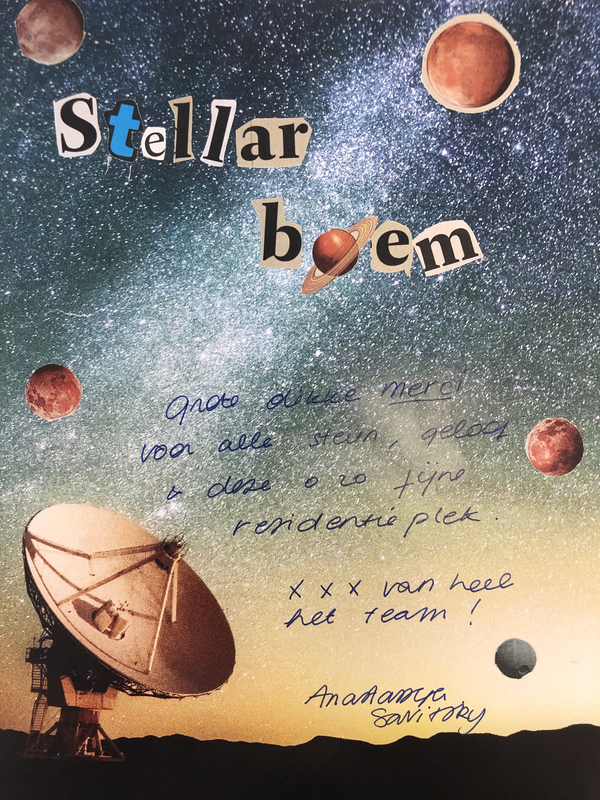 Stellar
boem
Grote dikke merci
voor alle steun, geloof
& deze o zo fijne
residentieplek.
x x x van heel
het team!
Anastassya
Savitsky